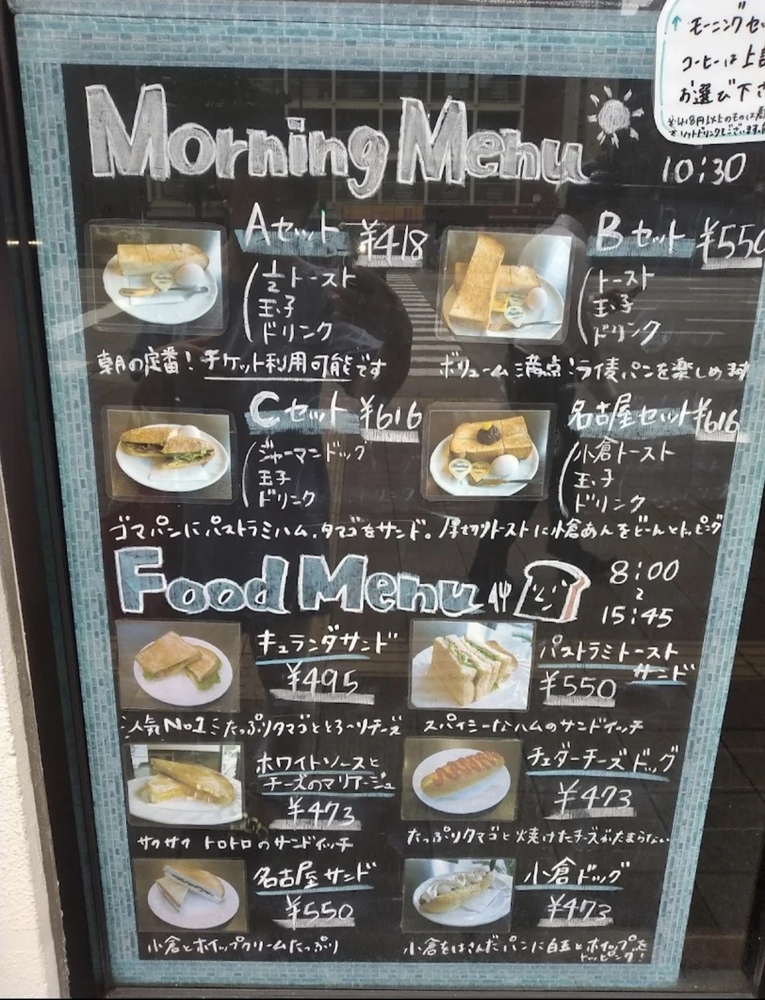 モーニングセッ
コーヒーは上記
お選び下さ
Morning Menu
10:30
Aセット ¥418
½トースト
玉子
ドリンク
朝の定番!チケット利用可能です
Bセット ¥550
トースト
玉子
ドリンク
ボリューム満点!ライ麦パンを楽しめます
Cセット ¥616
ジャーマンドッグ
玉子
ドリンク
ゴマパンにパストラミハム、タマゴをサンド。
名古屋セット ¥616
小倉トースト
玉子
ドリンク
厚切りトーストに小倉あんをどーんとトッピング
Food Menu
8:00
~
15:45
キュランダサンド
¥495
人気No1 たっぷりタマゴととろ〜りチーズ
パストラミトースト
サンド
¥550
スパイシーなハムのサンドイッチ
ホワイトソースと
チーズのマリアージュ
¥473
サクサク トロトロのサンドイッチ
チェダーチーズドッグ
¥473
たっぷりタマゴと焼けたチーズがたまらない
名古屋サンド
¥550
小倉とホイップクリームたっぷり
小倉ドッグ
¥473
小倉をはさんだパンに白玉とホイップを
トッピング!